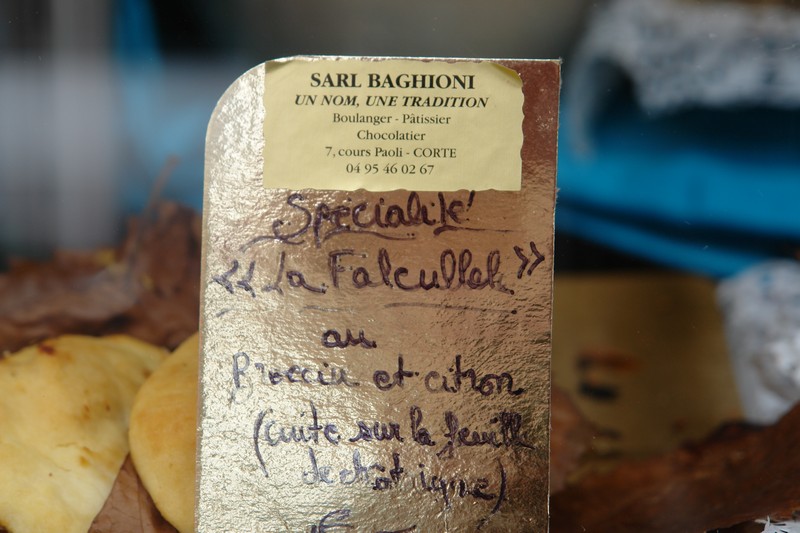 SARL BAGHIONI
UN NOM, UNE TRADITION
Boulanger - Pâtissier
Chocolatier
7, cours Paoli - CORTE
04 95 46 02 67
Spécialité
<< La Falcullele >>
au
Broccin et citron
(cuite sur la feuille
de chataigne)